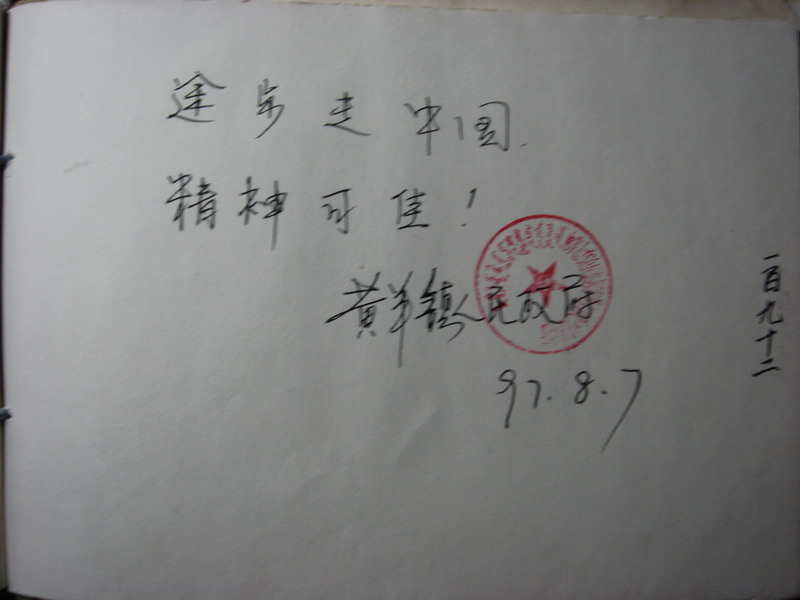 途步走中国.
精神可佳!
黄羊镇人民政府
97.8.7
一百九十二